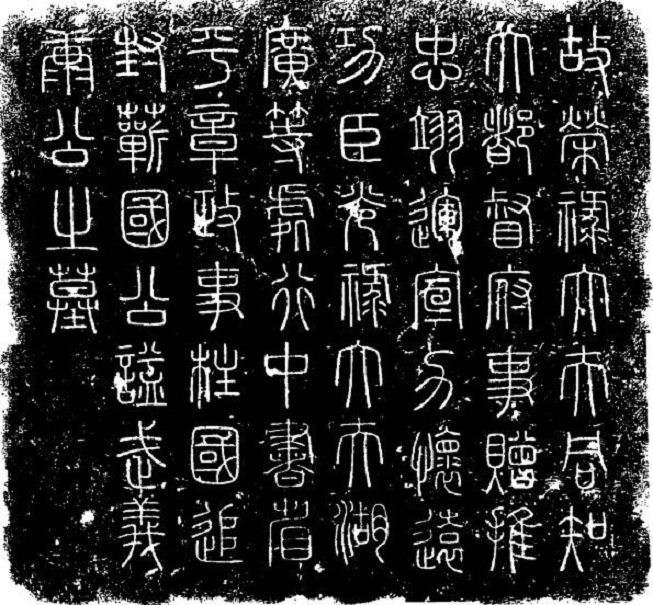 故榮祿大夫同知
大都督府事贈推
忠翊運宣力懷遠
功臣光祿大夫湖
廣等處行中書省
平章政事柱國追
封蘄國公謚武義
康公之墓